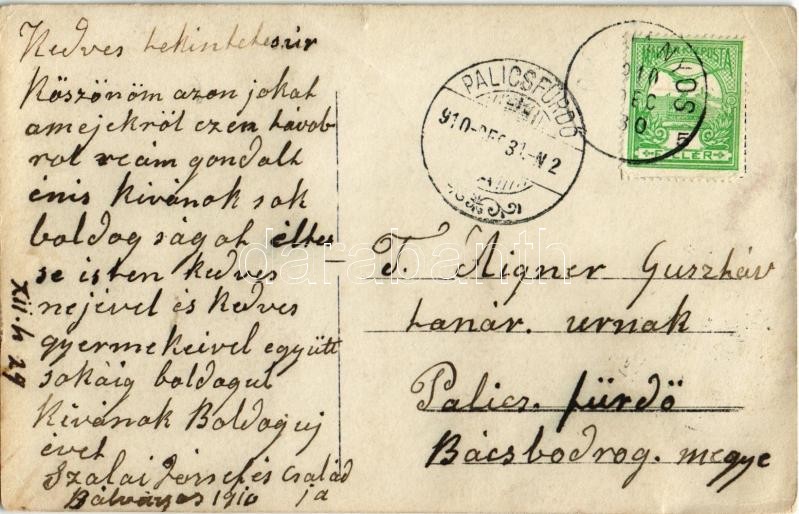 Kedves tekintetes úr
Köszönöm azon jokat
amejekről ezen távob
rol reám gondolt
énis Kivánok sok
boldog ságot éltes
se isten kedves
nejével és Kedves
gyermekeivel együtt
sokáig boldogul
Kivánok Boldog uj
évet
Szalai József és Család
Bálványos 1910 ja
XII. h 29
PALICSFÜRDŐ
910 DEC 31 N 2
NYOS
910
DEC
30
POSTA
5
FILLÉR
T. Aigner Gusztáv
tanár. urnak
Palics. fürdö
Bácsbodrog. megye
darabanth